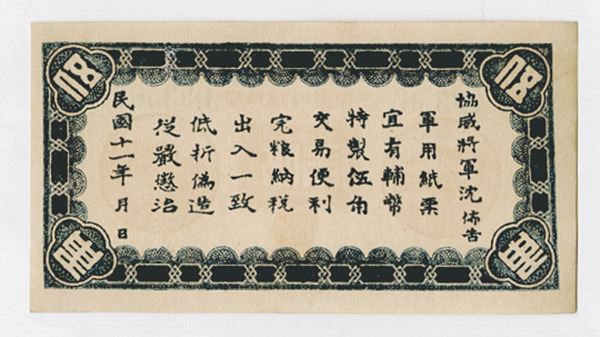 協威將軍沈佈告
軍用紙票
宜有輔幣
特製伍角
交易便利
完粮納税
出入一致
低折偽造
從嚴懲治
民國十一年 月 日